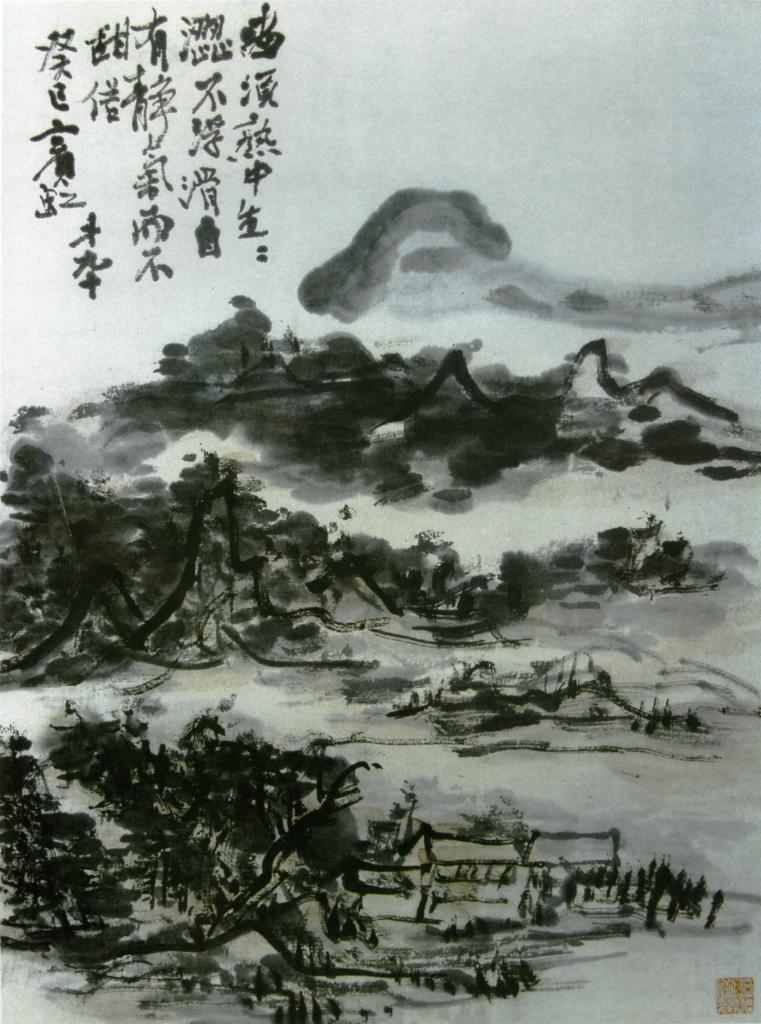 畫須熟中生〻
澀不浮滑自
有靜氣而不
甜俗
癸巳賓虹
年九十